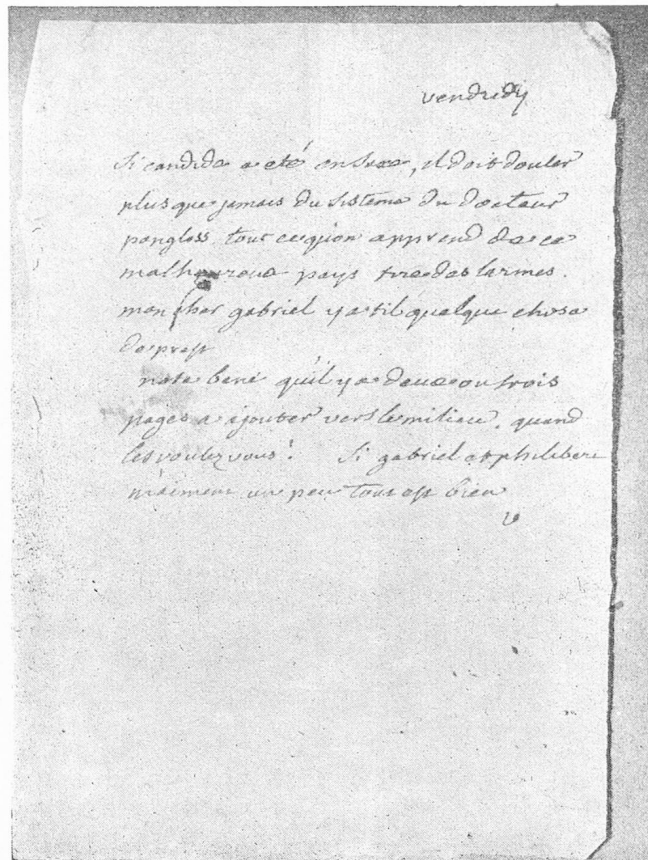 vendredy
Si candide a eté en Saxe, il doit douter
plus que jamais du sistème du docteur
pangloss, tout ce quon apprend de ce
malheureux pays tire des larmes.
mon cher gabriel y a til quelque chose
de prest
nota bene quil y a deux ou trois
pages a ajouter vers le milieu. quand
les voulez vous? Si gabriel et philibert
m'aiment un peu tout est bien
V